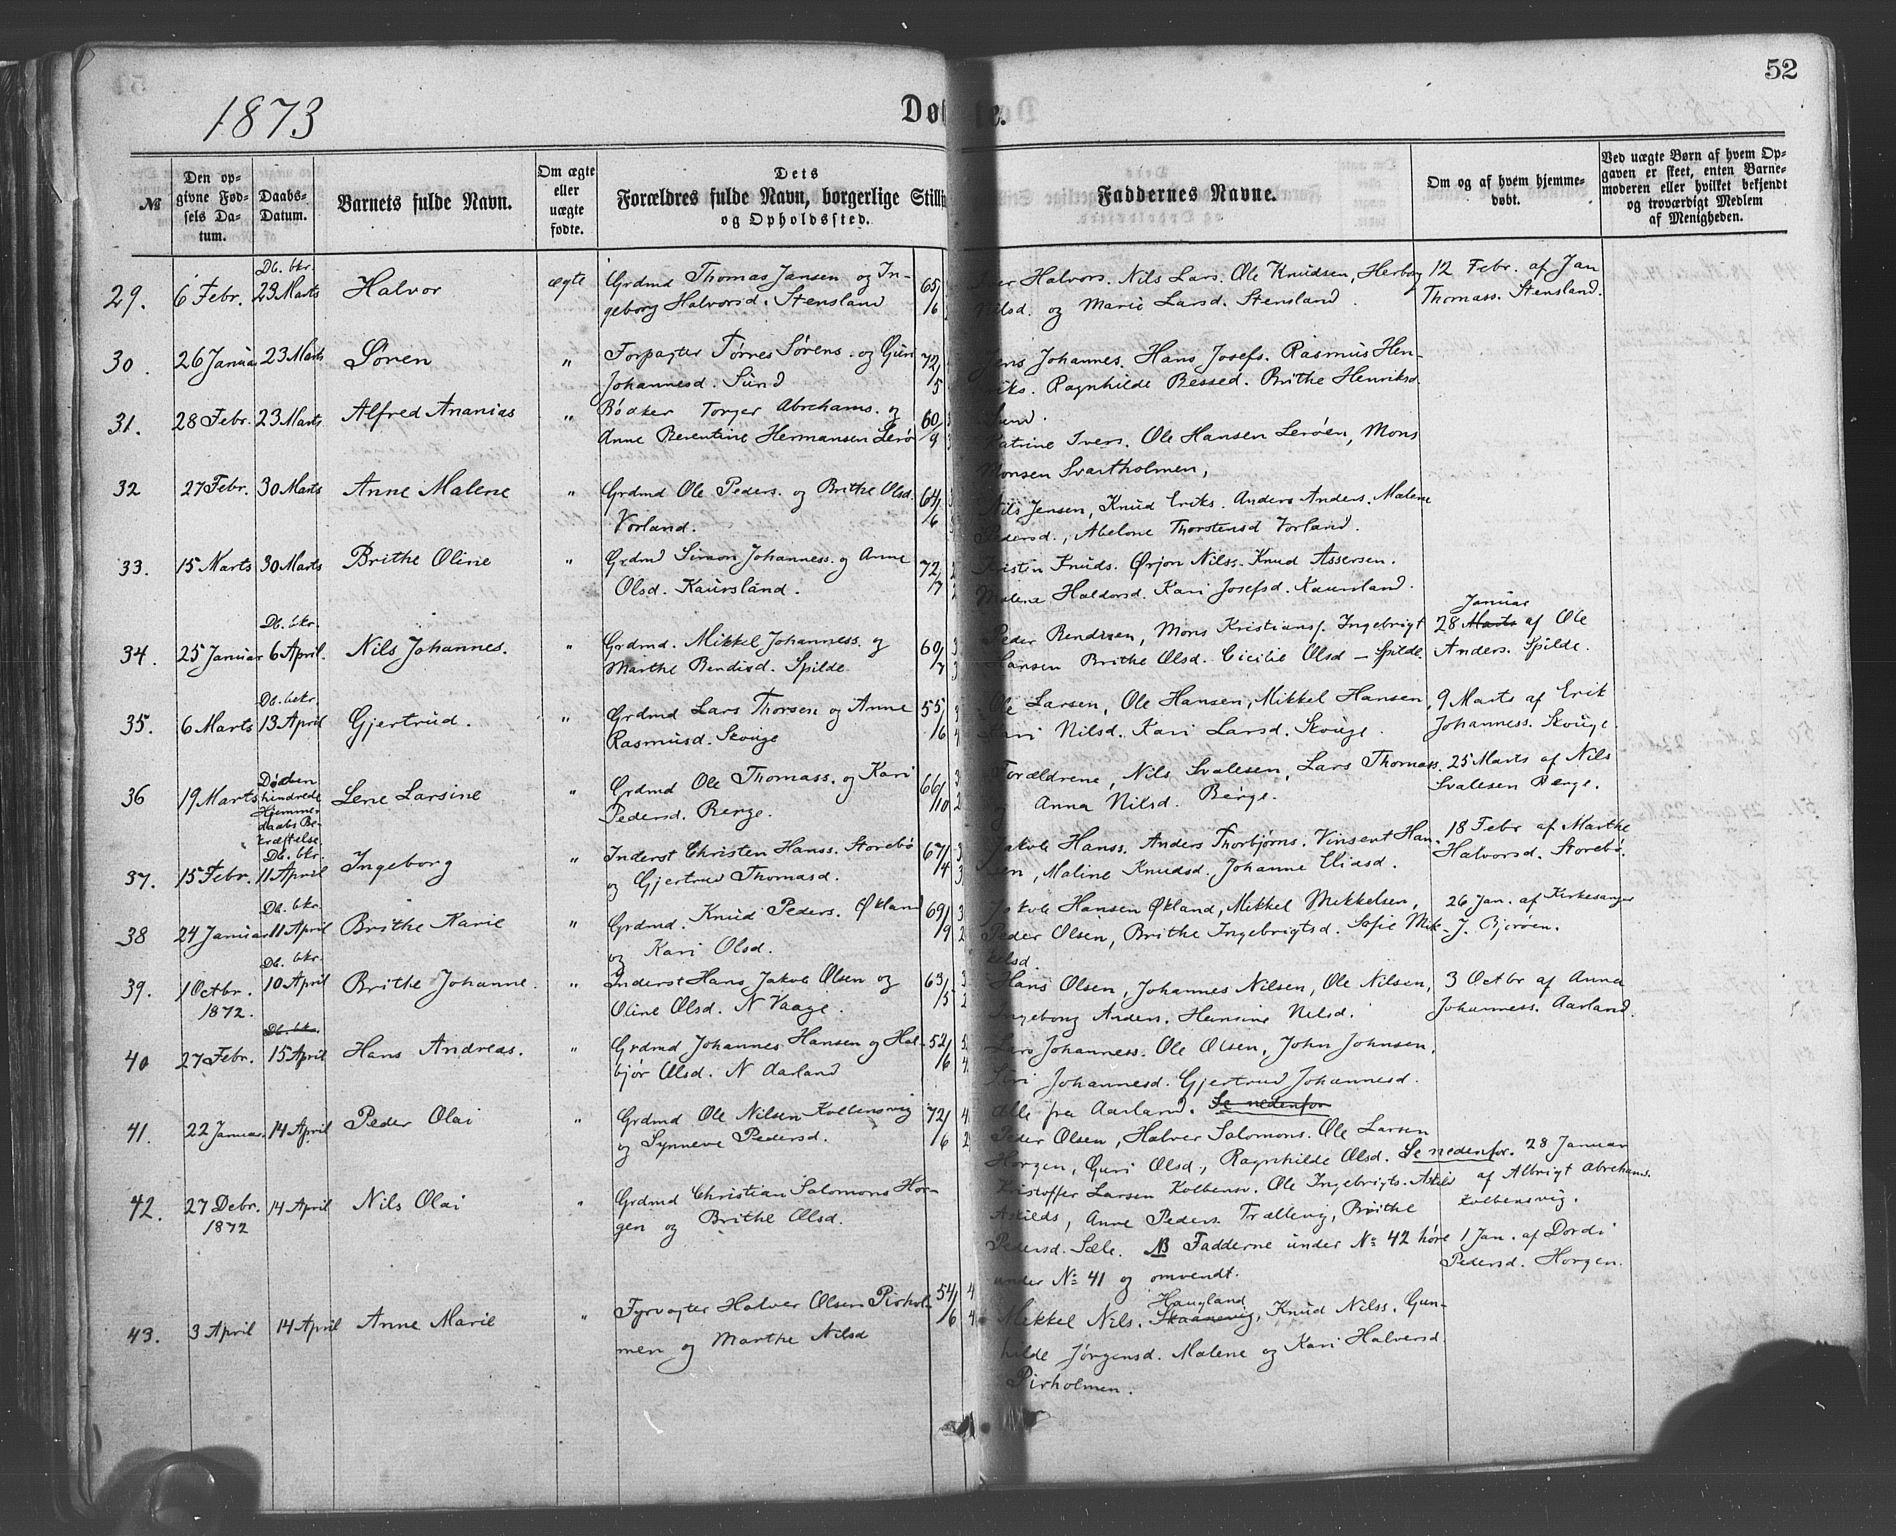 52
1873
Døbte.
№
Den op-
givne Fød-
sels Da-
tum.
Daabs-
Datum.
Barnets fulde Navn.
Om ægte
eller
uægte
fødte.
Dets
Forældres fulde Navn, borgerlige Stilli
og Opholdssted.
Faddernes Navne.
Om og af hvem hjemme-
døbt.
Ved uægte Børn af hvem Op-
gaven er skeet, enten Barne-
moderen eller hvilket bekjendt
og troværdigt Medlem
af Menigheden.
29. 6 Febr. Db. bkr. 23 Marts Halvor ægte
Grdmd Thomas Jansen og In-
geborg Halvorsd. Stensland
65/6
Halvors. Nils Lars. Ole Knudsen, Herborg
Nilsd. og Marie Larsd. Stensland.
12 Febr. af Jan
Thomass. Stensland.
30. 26 Januar 23 Marts Søren "
Forpagter Tørres Sørens. og Guri
Johannesd. Sund
72/5
Jens Johannes. Hans Josefs. Rasmus Hen-
riks. Ragnhilde Bessed. Brithe Henriksd
Sund.
31. 28 Febr. 23 Marts Alfred Ananias "
Bødker Torger Abrahams. og
Anne Berentine Hermansen Lerø
60/9
Katrine Ivers. Ole Hansen Lerøen, Mons
Monsen Svartholmen,
32 27 Febr. 30 Marts Anne Malene "
Grdmd Ole Peders. og Brithe Olsd.
Vorland.
64/6
Nils Jensen, Knud Eriks. Anders Anders. Malene
Pedersd., Abelone Thorstensd Vorland.
33. 15 Marts 30 Marts Brithe Oline "
Grdmd Simon Johanness. og Anne
Olsd. Kaursland.
72/7
Kristen Knuds. Ørjon Nilss. Knud Assersen.
Malene Haldorsd. Kari Josefsd. Kaursland.
34. 25 Januar Db. bkr. 6 April. Nils Johannes. "
Grdmd. Mikkel Johanness. og
Marthe Bendixd. Spilde
60/7
Peder Bendixen, Mons Kristians. Ingebrigt
Hansen Brithe Olsd. Cicilie Olsd — Spilde.
Januar
28 Marts af Ole
Anders. Spilde.
35. 6 Marts Db. bekr. 13 April Gjertrud. "
Grdmd Lars Thorsen og Anne
Rasmusd. Skouge
55/6
Ole Larsen, Ole Hansen, Mikkel Hansen,
Kari Nilsd. Kari Larsd. Skouge.
9 Marts af Erik
Johanness. Skouge.
36 19 Marts Døden
hindrede
Hjemme-
daabs Be-
kræftelse
Lene Larsine "
Grdmd Ole Thomass. og Kari
Pedersd. Berge.
66/10
Forældrene, Nils Svalesen, Lars Thomass.
og Anna Nilsd. Berge.
25 Marts af Nils
Svalesen Berge.
37. 15 Febr. Db. bkr. 11 April Ingeborg "
Inderst Christen Hanss. Storebø
og Gjertrud Thomasd.
67/4
Jakob Hanss. Anders Thorbjørns. Vinsent Han-
sen, Maline Knudsd. Johanne Eliasd.
18 Febr af Marthe
Halvorsd. Storebø.
38 24 Januar Db. bkr. 11 April Brithe Karie "
Grdmd. Knud Peders. Økland
og Kari Olsd.
69/9
Jakob Hansen Økland, Mikkel Mikkelsen,
Peder Olsen, Brithe Ingebrigtsd. Sofie Mik-
kelsd.
26 Jan. af Kirkesanger
J. Bjorøen.
39. 1 Octbr.
1872.
Db. bkr. 10 April Brithe Johanne. "
Inderst Hans Jakob Olsen og
Oline Olsd. N Vaage.
63/5
Hans Olsen, Johannes Nilsen, Ole Nilsen,
Ingeborg Anders. Hansine Nilsd.
3 Octbr af Anna
Johanness. Aarland.
40 27 Febr. Db. bkr. 15 April Hans Andreas. "
Grdmd Johannes Hansen og Hal-
bjør Olsd. N Aarland
52/6
Lars Johanness. Ole Olsen, John Johnsen,
Siri Johannesd. Gjertrud Johannesd.
Alle fra Aarland. Se nedenfor
41. 22 Januar. 14 April Peder Olai "
Grdmd Ole Nilsen Kolbensvig
og Synneve Pedersd.
72/6
Peder Olsen, Halver Salomons. Ole Larsen
Horgen, Guri Olsd., Ragnhilde Olsd. Se nedenfor.
28 Januar
af Albrigt Abrahams.
Kolbensvig.
42. 27 Debr.
1872
14 April Nils Olai "
Grdmd Christian Salomons Hor-
gen og Brithe Olsd.
Kristoffer Larsen Kolbensv. Ole Ingebrigts. Askild
Askilds, Anne Peders. Trællevig, Brithe
Pedersd. Sæle. NB Fadderne under № 42 høre
under № 41 og omvendt.
1 Jan. af Dordi
Pedersd. Horgen.
43. 3 April 14 April Anne Marie "
Fyrvogter Halver Olsen Pirhol-
men og Marthe Nilsd
54/6
Haugland
Mikkel Nils. Skaanevig, Knud Nilss. Gun-
hilde Jørgensd. Malene og Kari Halversd.
Pirholmen.